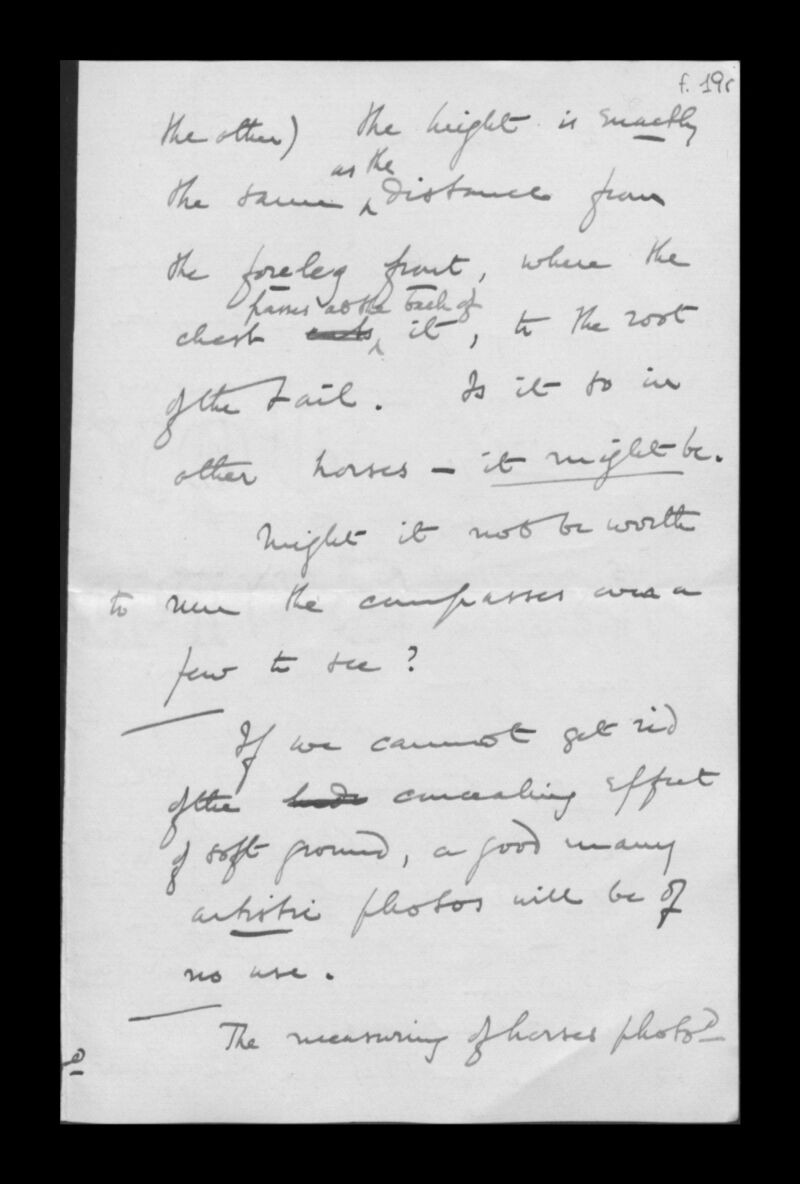 f. 19r
the other) the height is exactly
as the
the same ^ distance from
the foreleg front, where the
passes at the back of
chest ^ it, to the root
of the tail. Is it so in
other horses – it might be.
Might it not be worth
to run the compasses over a
few to see?
If we cannot get rid
of the concealing effect
of soft ground, a good many
artistic photos will be of
no use.
The measuring of horses photo^d